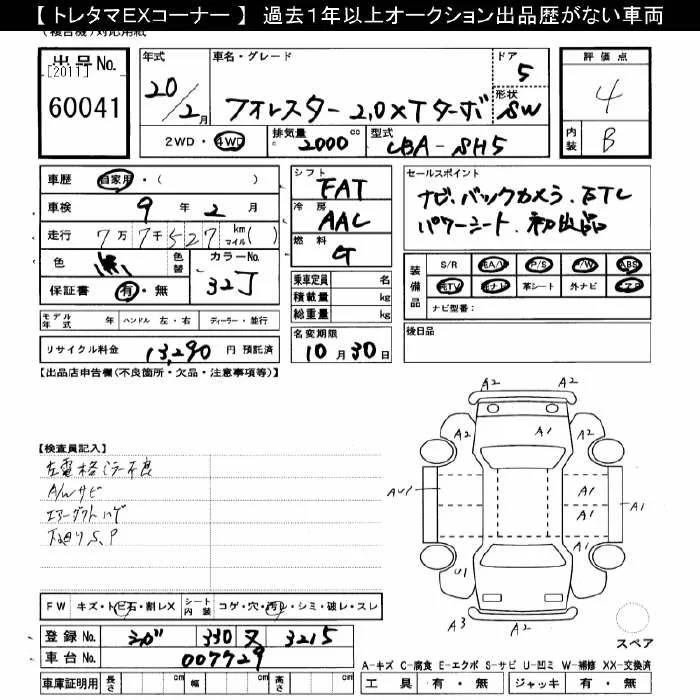 【 トレタマEXコーナー 】 過去1年以上オークション出品歴がない車両
(複合機)対応用紙
出品No. [2011] 60041
年式 20/2月
車名・グレード フォレスター 2,0XT ターボ
ドア 5
形状 SW
評価点 4
内装 B
2WD・4WD
排気量 2000 cc
型式 CBA-SH5
車歴 自家用・( )
車検 9年 2月
走行 7万7千527 km マイル( )
色 黒 色替
カラーNo. 32J
保証書 有・無
シフト FAT
冷房 AAC
燃料 G
セールスポイント
ナビ.バックカメラ.ETC
パワーシート.初出品
乗車定員 名
積載量 kg
総重量 kg
装備品 S/R A/V P/S P/W ABS
純TV 純ナビ 革シート 外ナビ エアB
ナビ型番:
モデル年式 年 ハンドル 左・右 ディーラー・並行
名変期限 10月30日
後日品
リサイクル料金 13,290 円 預託済
【出品店申告欄(不良箇所・欠品・注意事項等)】
【検査員記入】
左電格ミラー不良
A/Wサビ
エアーダクトハゲ
下廻りS.P
A2 A2
A2 A1 A2
AU1 A1 A1
A1
U1 A1
A3 A2
スペア
FW キズ・トビ石・割レX シート内装 コゲ・穴・汚レ・シミ・破レ・スレ
登録No. シガ 330 又 3215
車台No. 007729
A-キズ C-腐食 E-エクボ S-サビ U-凹ミ W-補修 XX-交換済
車庫証明用 長さ cm 幅 cm 高さ cm
工具 有・無 ジャッキ 有・無